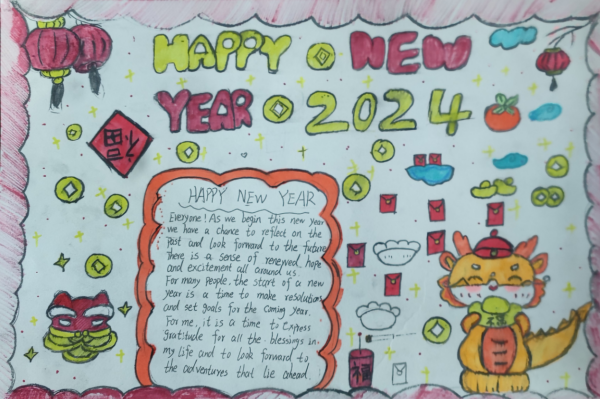 HAPPY NEW
YEAR 2024
福
HAPPY NEW YEAR
Everyone! As we begin this new year
we have a chance to reflect on the
past and look forward to the future
There is a sense of renewed hope
and excitement all around us.
For many people. the start of a new
year is a time to make resolutions
and set goals for the coming year.
For me, it is a time to express
gratitude for all the blessings in
my life and to look forward to
the adventures that lie ahead.
福